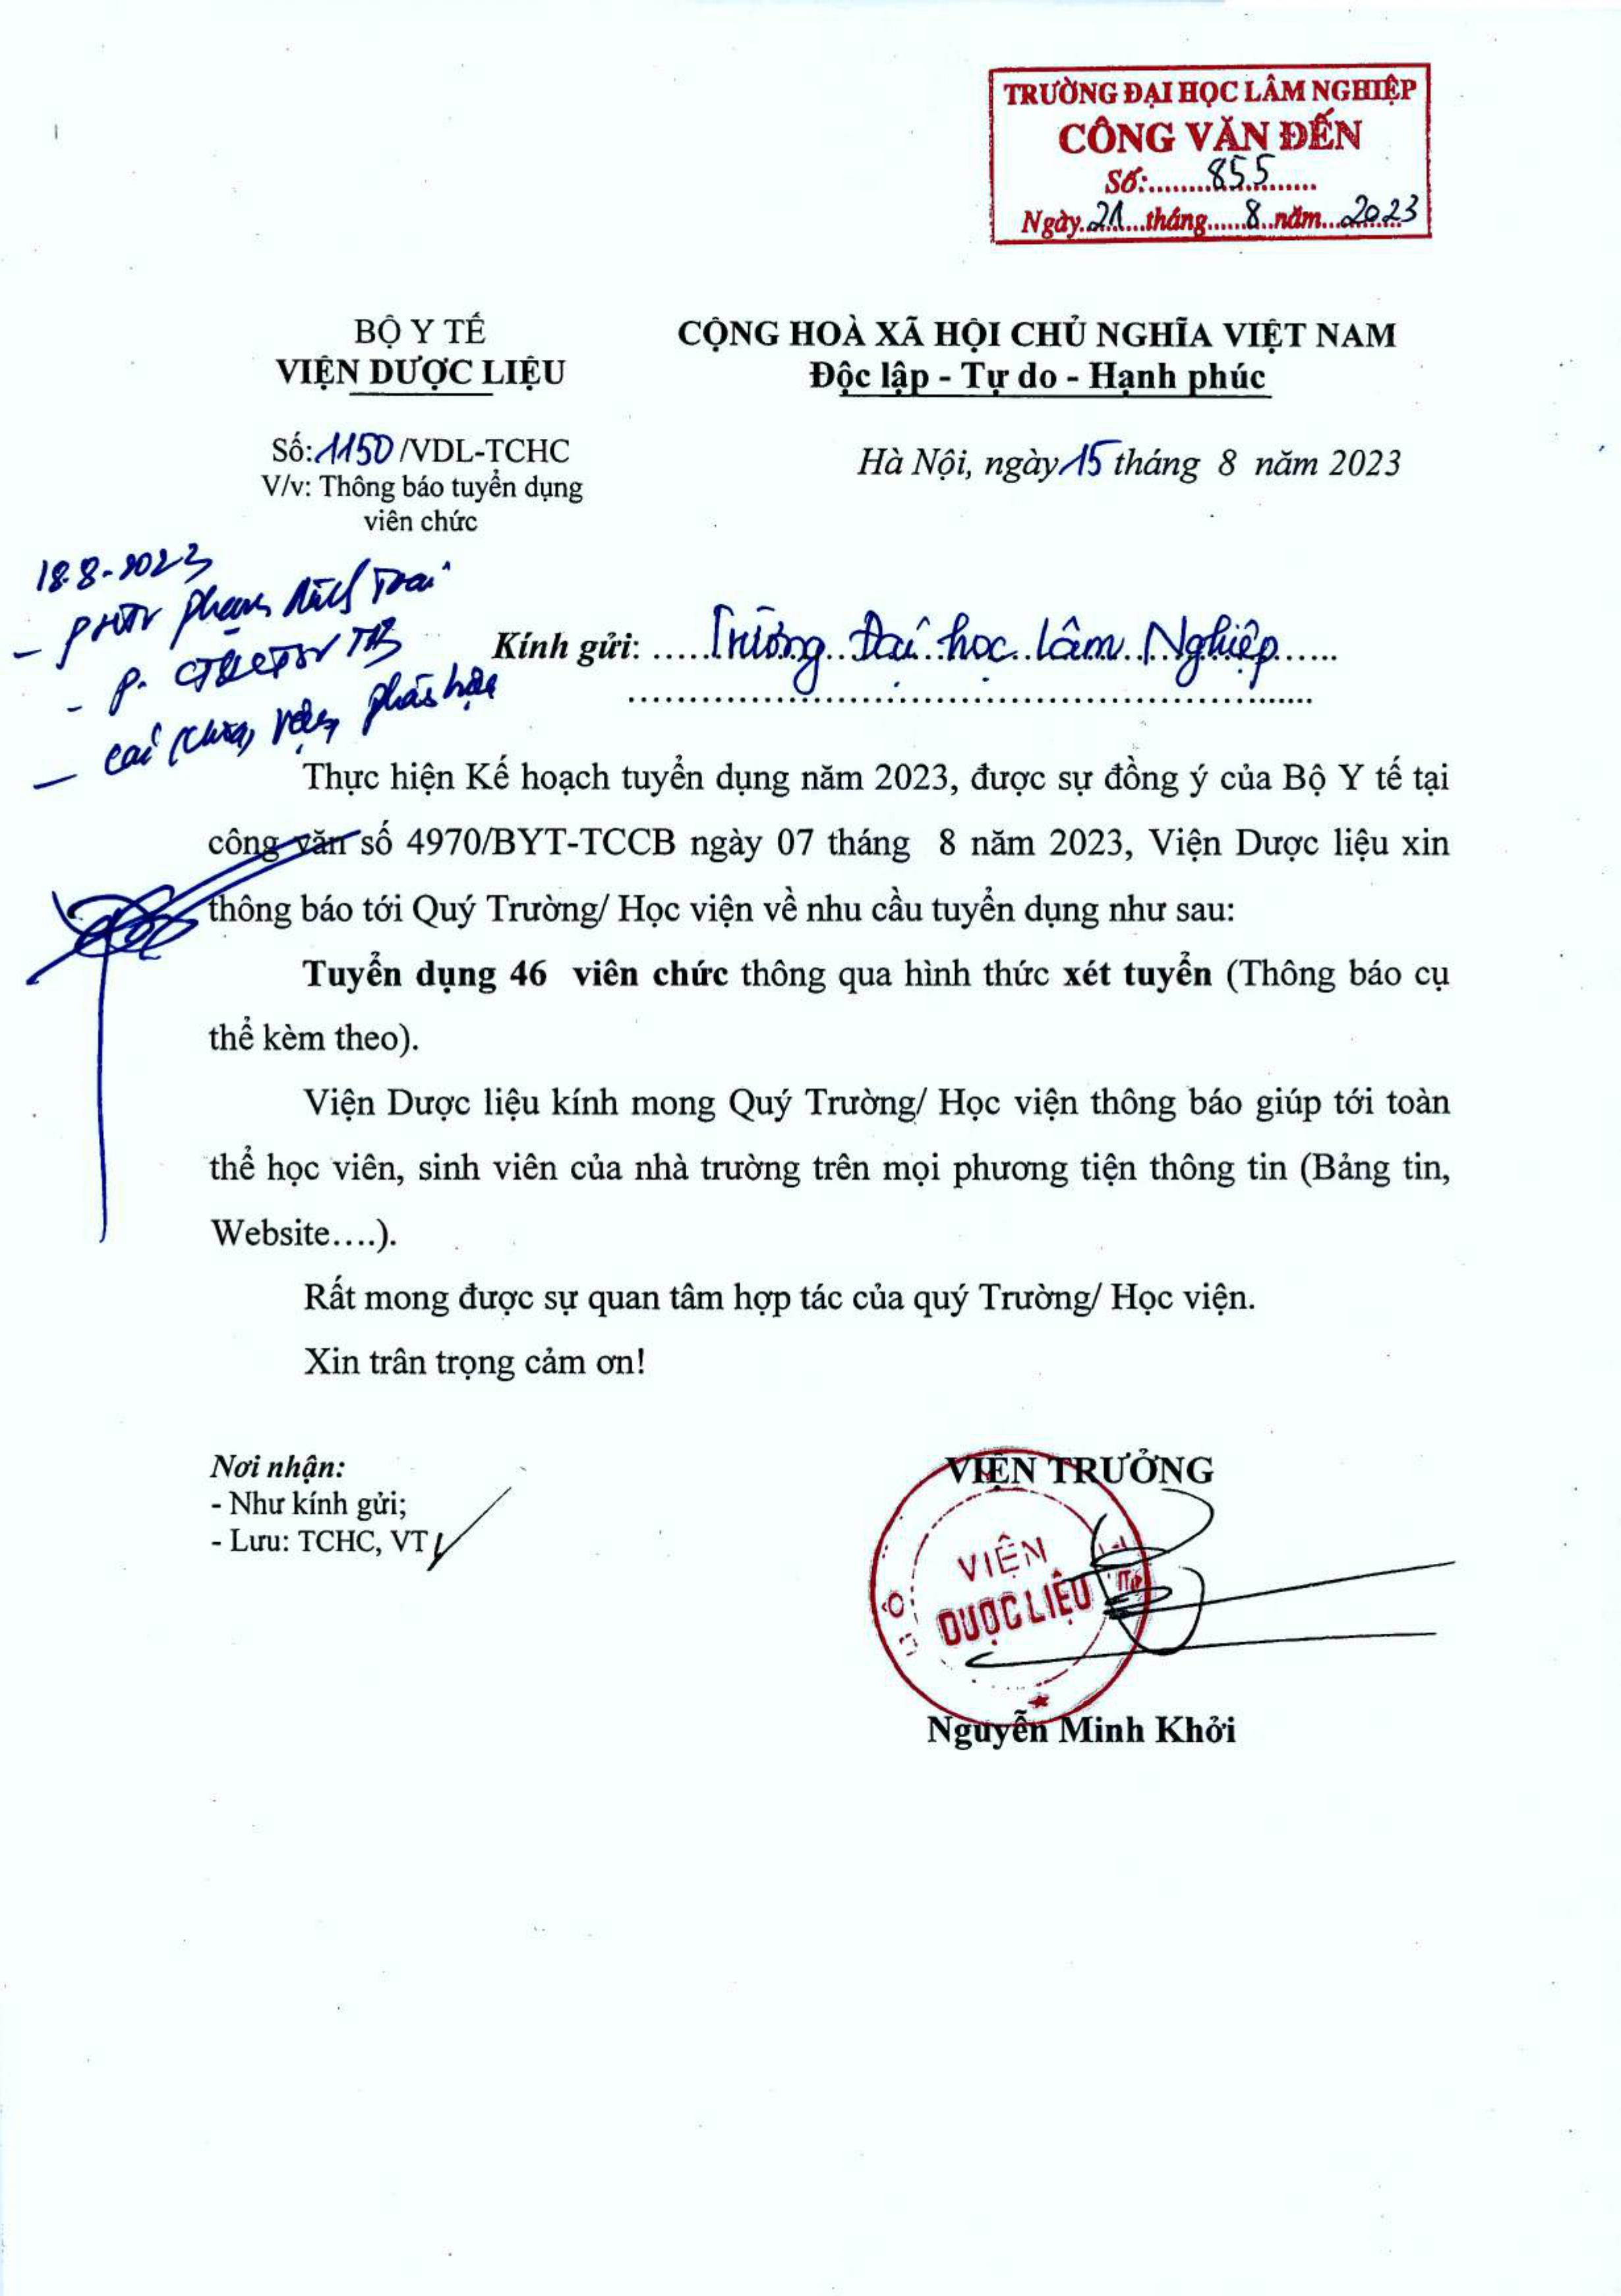 TRƯỜNG ĐẠI HỌC LÂM NGHIỆP
CÔNG VĂN ĐẾN
Số:.........855............
Ngày..21....tháng......8..năm...2023
BỘ Y TẾ
VIỆN DƯỢC LIỆU
CỘNG HOÀ XÃ HỘI CHỦ NGHĨA VIỆT NAM
Độc lập - Tự do - Hạnh phúc
Số: 1150 /VDL-TCHC
V/v: Thông báo tuyển dụng
viên chức
Hà Nội, ngày 15 tháng 8 năm 2023
18-8-2023
- PHTr Phạm
- P.
-
Kính gửi: .....Trường Đại học Lâm Nghiệp......
Thực hiện Kế hoạch tuyển dụng năm 2023, được sự đồng ý của Bộ Y tế tại
công văn số 4970/BYT-TCCB ngày 07 tháng 8 năm 2023, Viện Dược liệu xin
thông báo tới Quý Trường/ Học viện về nhu cầu tuyển dụng như sau:
Tuyển dụng 46 viên chức thông qua hình thức xét tuyển (Thông báo cụ
thể kèm theo).
Viện Dược liệu kính mong Quý Trường/ Học viện thông báo giúp tới toàn
thể học viên, sinh viên của nhà trường trên mọi phương tiện thông tin (Bảng tin,
Website….).
Rất mong được sự quan tâm hợp tác của quý Trường/ Học viện.
Xin trân trọng cảm ơn!
Nơi nhận:
- Như kính gửi;
- Lưu: TCHC, VT
VIỆN TRƯỞNG
VIỆN
DƯỢC LIỆU
Nguyễn Minh Khởi